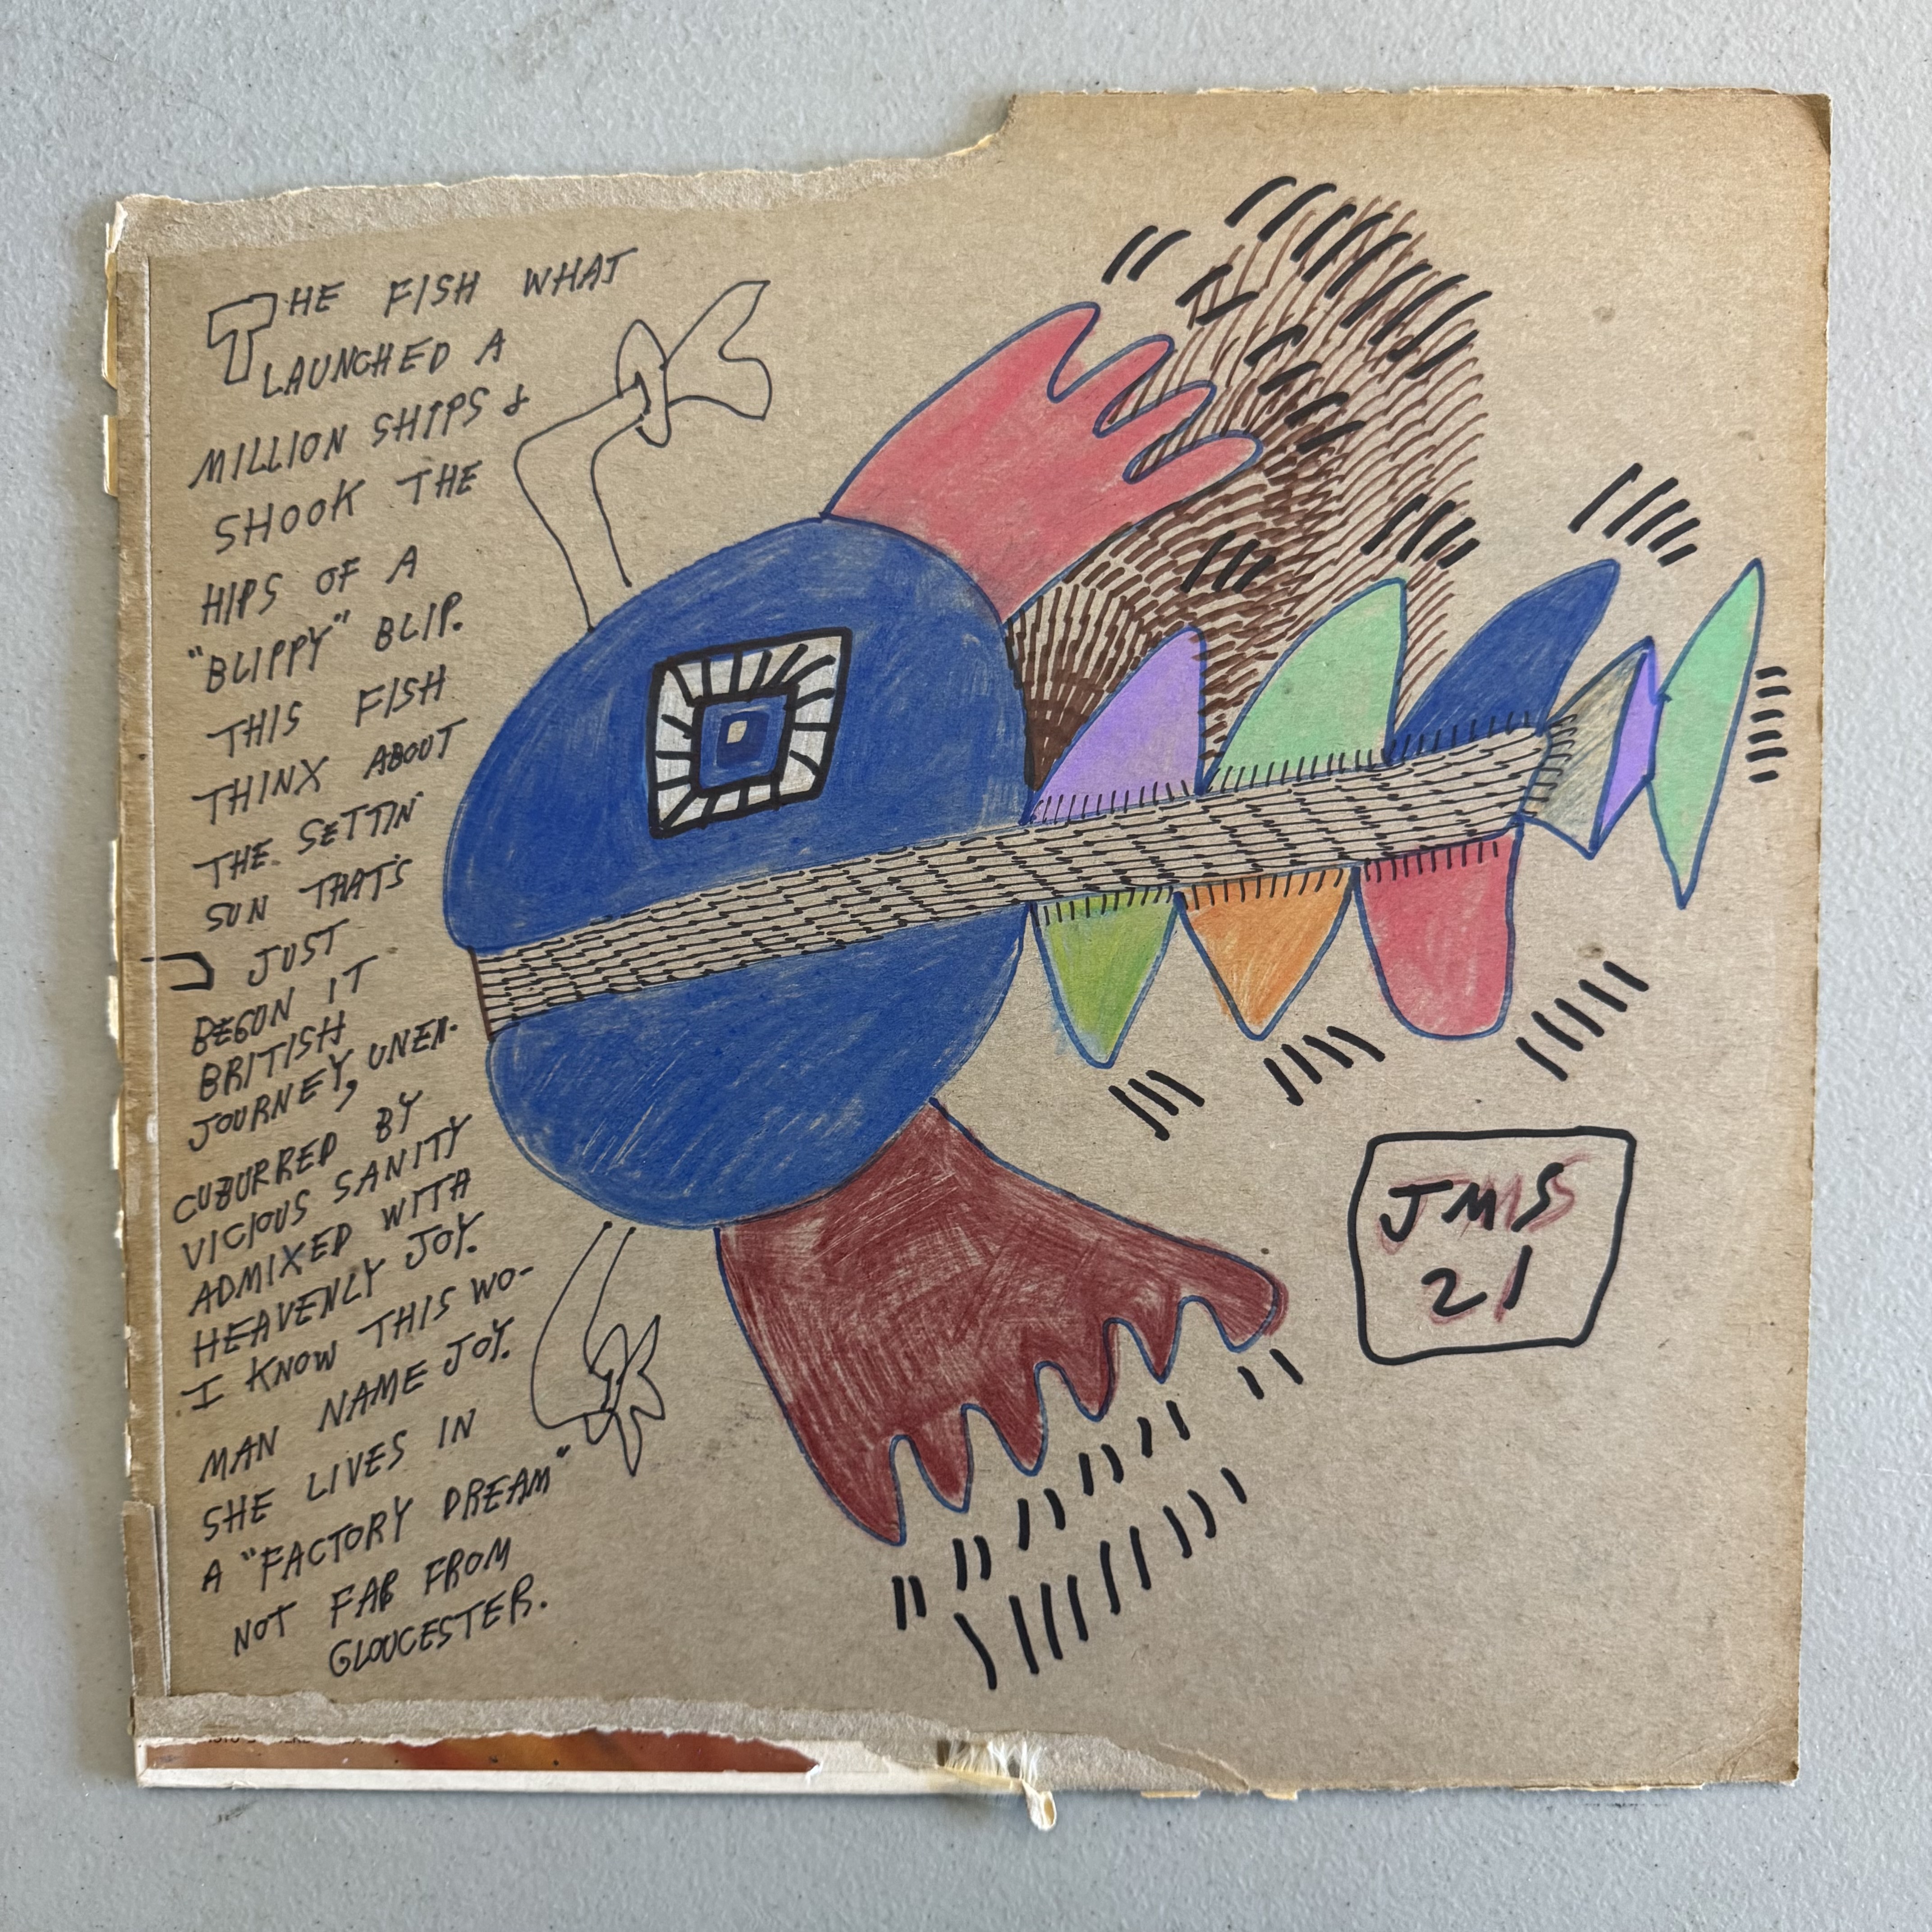 THE FISH WHAT
LAUNCHED A
MILLION SHIPS &
SHOOK THE
HIPS OF A
"BLIPPY" BLIP.
THIS FISH
THINX ABOUT
THE SETTIN'
SUN THAT'S
JUST
BEGUN IT
BRITISH
JOURNEY, UNEN-
CUBURRED BY
VICIOUS SANITY
ADMIXED WITH
HEAVENLY JOY.
I KNOW THIS WO-
MAN NAME JOY.
SHE LIVES IN
A "FACTORY DREAM"
NOT FAR FROM
GLOUCESTER.
JMS
21